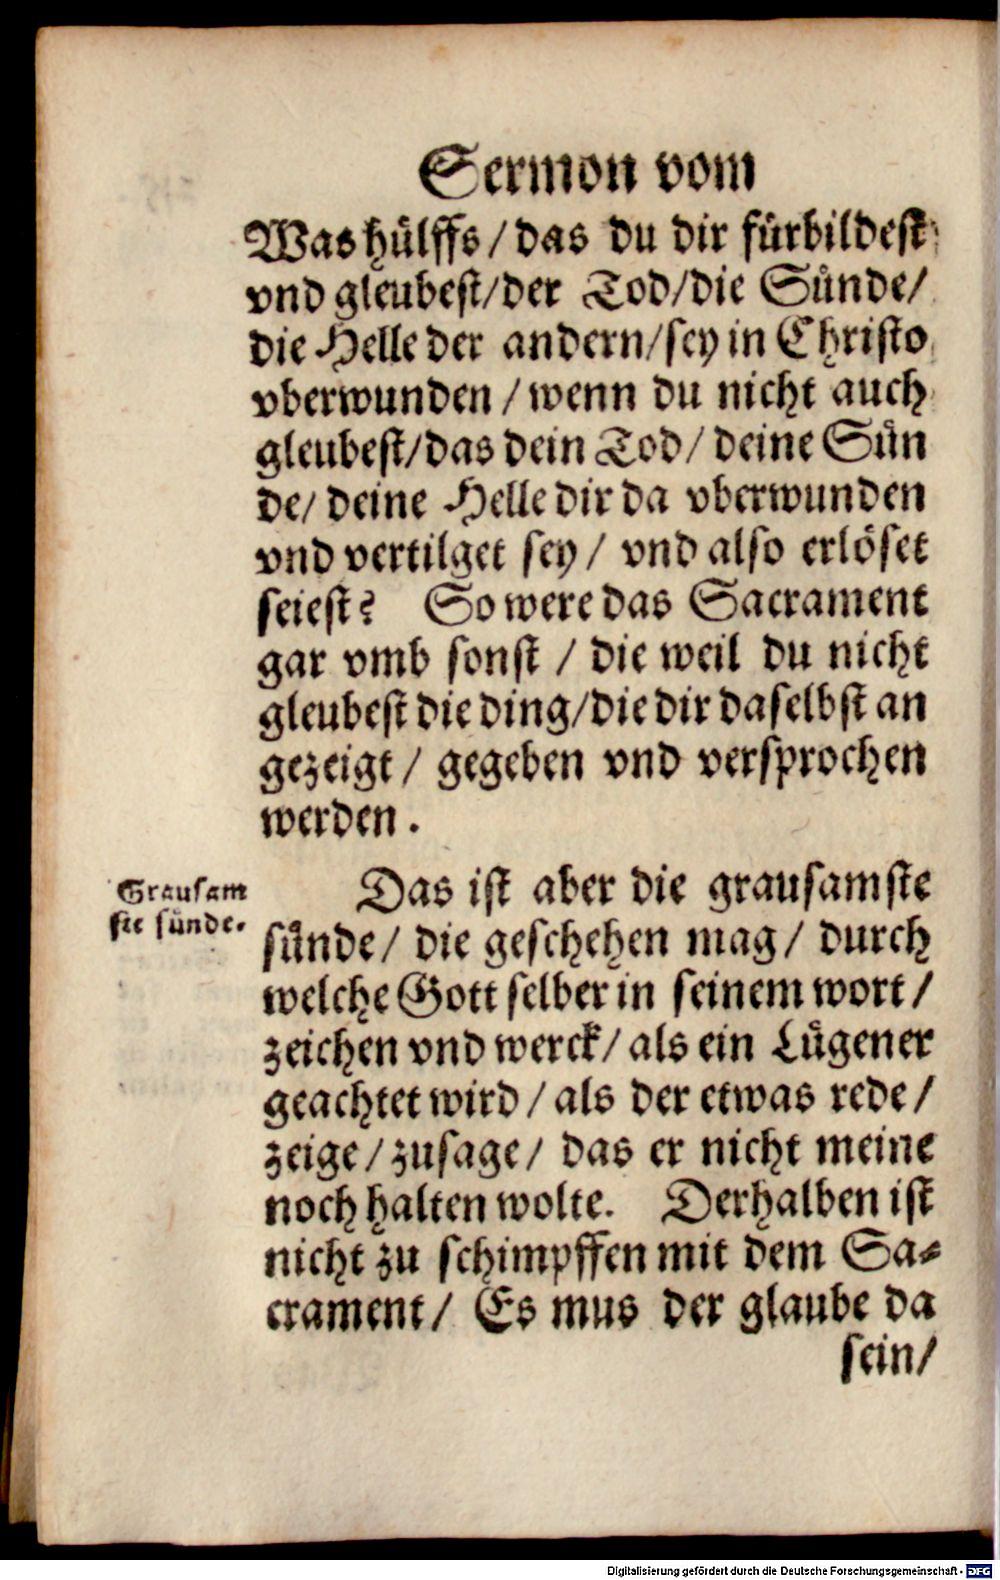 Sermon vom
Was hülffs / das du dir fürbildest
vnd gleubest / der Tod / die Sünde /
die Helle der andern / sey in Christo
vberwunden / wenn du nicht auch
gleubest / das dein Tod / deine Sün
de / deine Helle dir da vberwunden
vnd vertilget sey / vnd also erlöset
seiest? So were das Sacrament
gar vmb sonst / die weil du nicht
gleubest die ding / die dir daselbst an
gezeigt / gegeben vnd versprochen
werden.
Grausam
ste sünde.
Das ist aber die grausamste
sünde / die geschehen mag / durch
welche Gott selber in seinem wort /
zeichen vnd werck / als ein Lügener
geachtet wird / als der etwas rede /
zeige / zusage / das er nicht meine
noch halten wolte. Derhalben ist
nicht zu schimpffen mit dem Sa-
crament / Es mus der glaube da
sein /
Digitalisierung gefördert durch die Deutsche Forschungsgemeinschaft - DFG